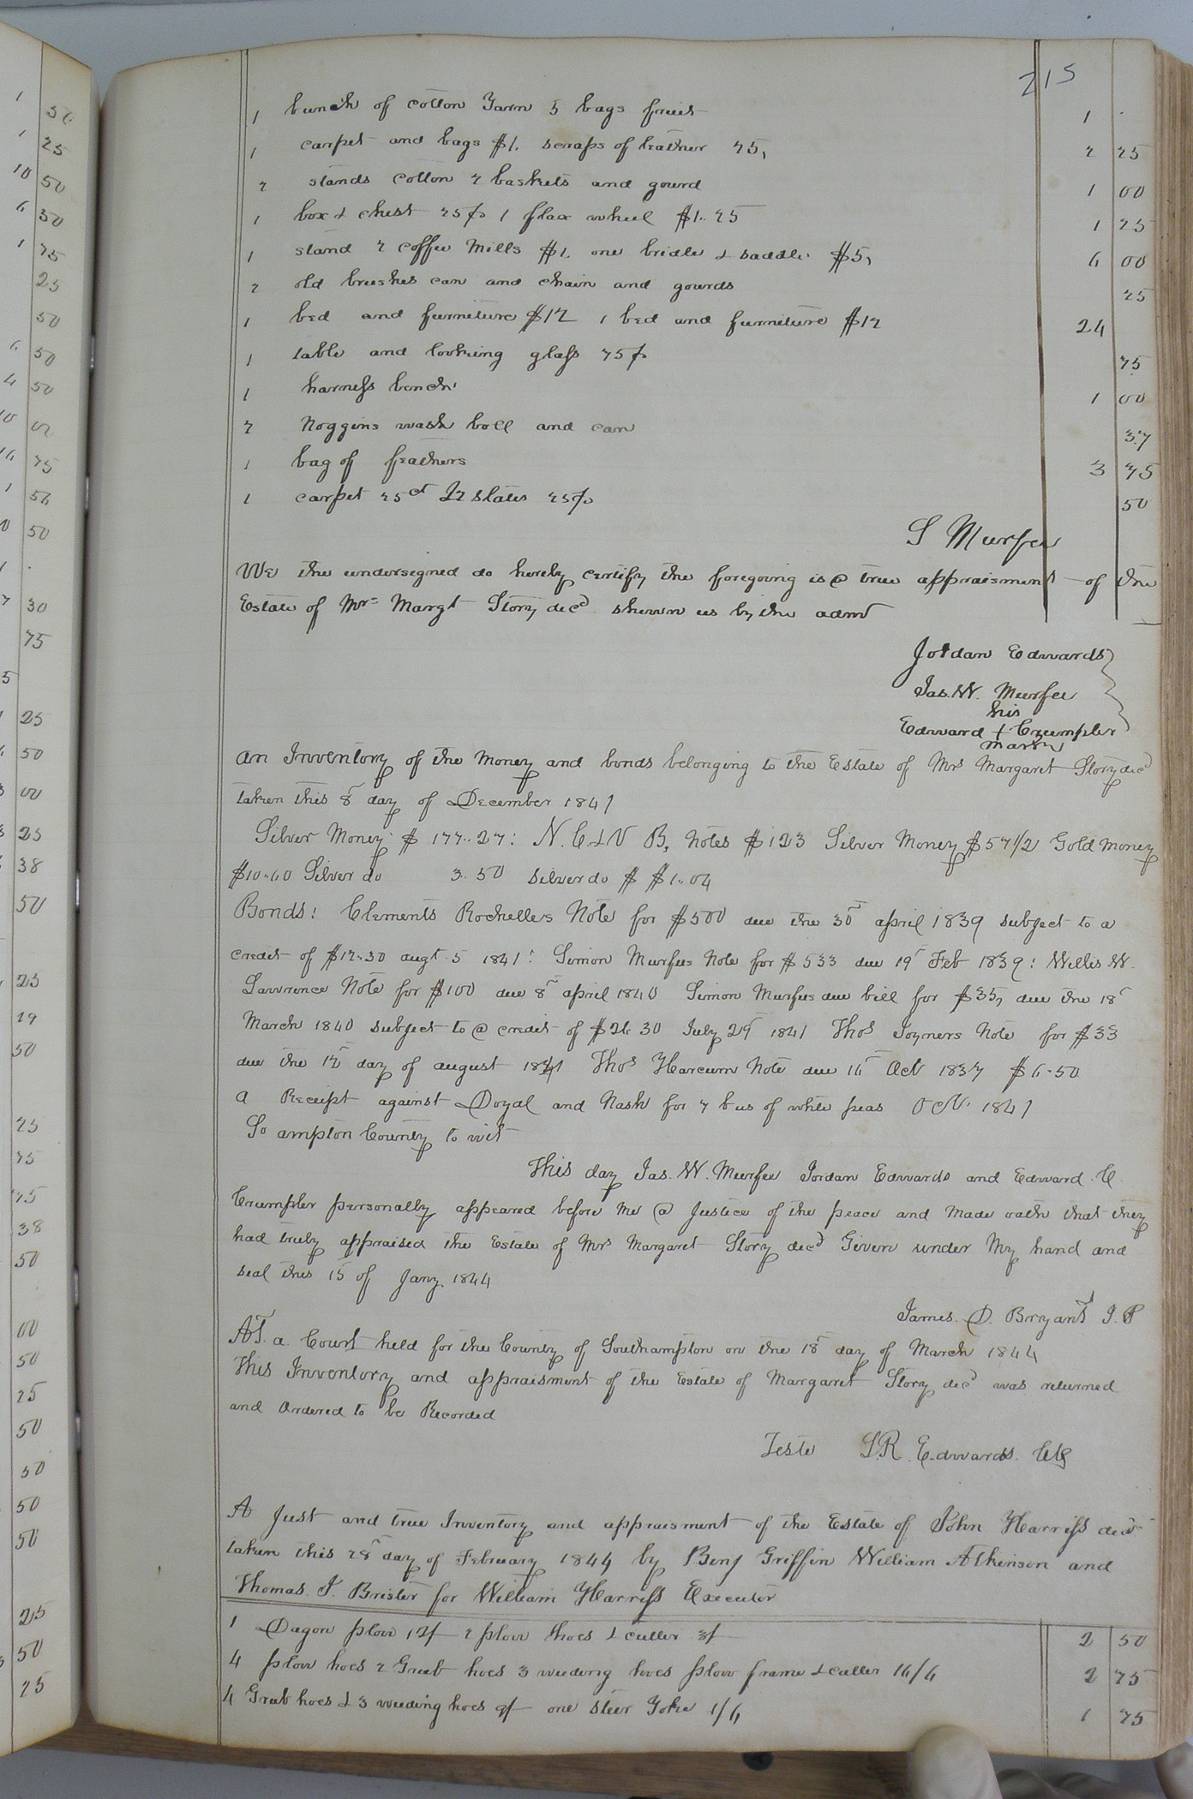 215
1 bunch of cotton Yarn 5 bags fruit 1 .
1 carpet and bags $1. scraps of leather 25, 2 25
2 stands cotton 2 baskets and gourd 1 00
1 box & chest 25 1 flax wheel $1.25 1 25
1 stand 2 coffee Mills $1. one bridle & saddle $5, 6 00
2 old brushes can and chain and gourds 25
1 bed and furniture $12 1 bed and furniture $12 24
1 table and looking glass 75 75
1 harness bench 1 00
2 Noggins wash boll and can 37
1 bag of feathers 3 75
1 carpet 25ct 2 slates 25 50
S Murfee
We the undersigned do hereby certify the foregoing is a true appraisment of the
Estate of Mrs Margt Story decd shewn us by the admr
Jordan Edwards
Jas. W. Murfee
his
Edward + Crumpler
mark
An Inventory of the Money and bonds belonging to the Estate of Mrs Margaret Story decd
taken this 8 day of December 1841
Silver Money $ 177.27: N. C & V B, Notes $123 Silver Money $57 1/2 Gold Money
$10.60 Silver do 3.50 silver do $ $1.04
Bonds: Clements Rochelles Note for $500 due the 30th april 1839 subject to a
credit of $12.50 augt 5 1841: Simon Murfees Note for $533 due 19 Feb 1839: Willis W.
Lawrence Note for $100 due 8th april 1840 Simon Murfees due bill for $35, due the 18
March 1840 subject to a credit of $26 30 July 29 1841 Thos Joyners Note for $33
due the 12 day of august 1841 Thos Harcum Note due 16 Oct 1837 $6.50
a Receipt against Doyal and Nash for 7 bus of white peas Oct. 1841
So ampton County to wit
This day Jas. W. Murfee Jordan Edwards and Edward C.
Crumpler personally appeared before me a Justice of the peace and Made oath that they
had truly appraised the Estate of Mrs Margaret Story decd Given under My hand and
seal this 15 of Jany. 1844
James. D. Bryant J. P
At a Court held for the County of Southampton on the 18 day of March 1844
This Inventory and appraisment of the Estate of Margaret Story decd was returned
and Ordered to be Recorded
Teste L.R. Edwards. Clk
A Just and true Inventory and appraisment of the Estate of John Harriss decd
taken this 28th day of February 1844 by Benj Griffin William Atkinson and
Thomas J. Brister for William Harriss Executor
1 Dagon plow 12/ 2 plow hoes & cutter 3/ 2 50
4 plow hoes 2 Grub hoes 3 weeding hoes plow frame & cutter 16/6 2 75
4 Grub hoes & 3 weeding hoes 9/ one steer Yoke 1/6 1 75